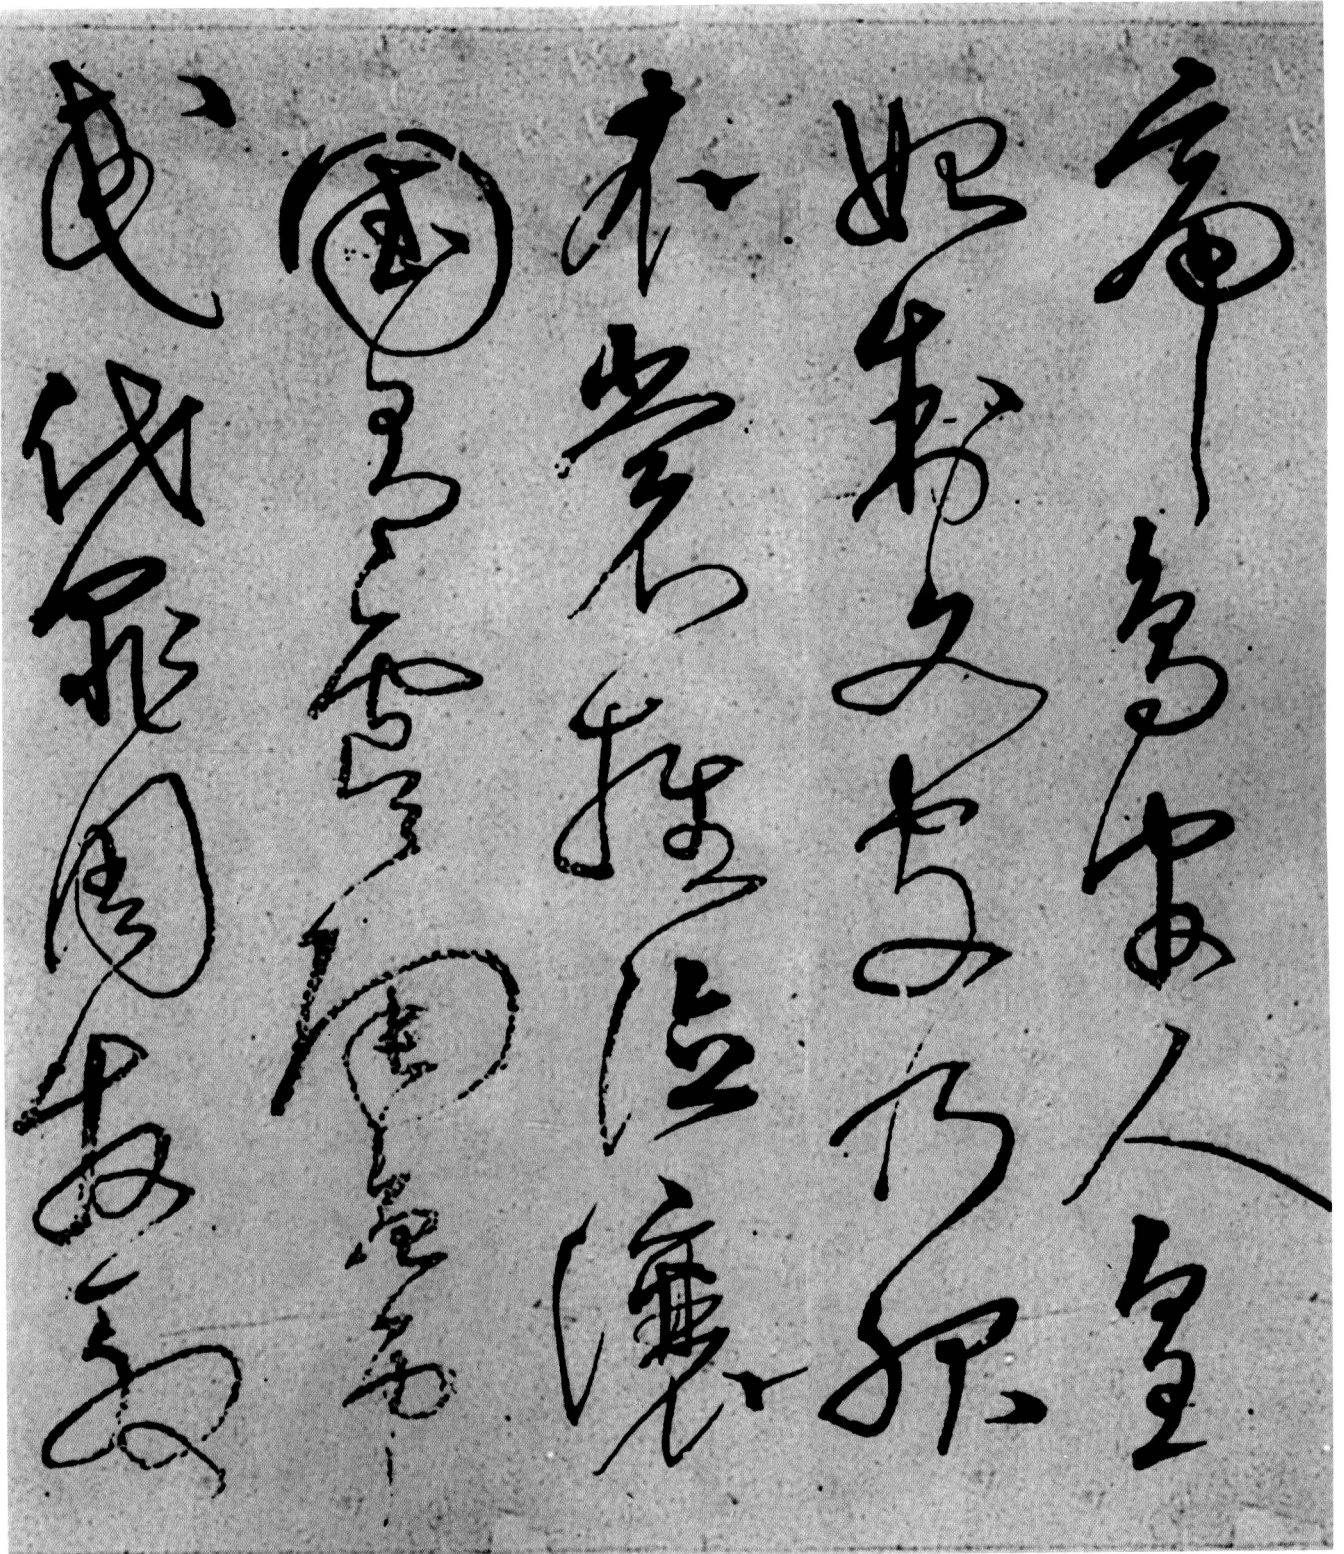 帝鳥官人皇
始制文字乃服
衣裳推位讓
國有虞陶唐
弔民伐罪周發殷